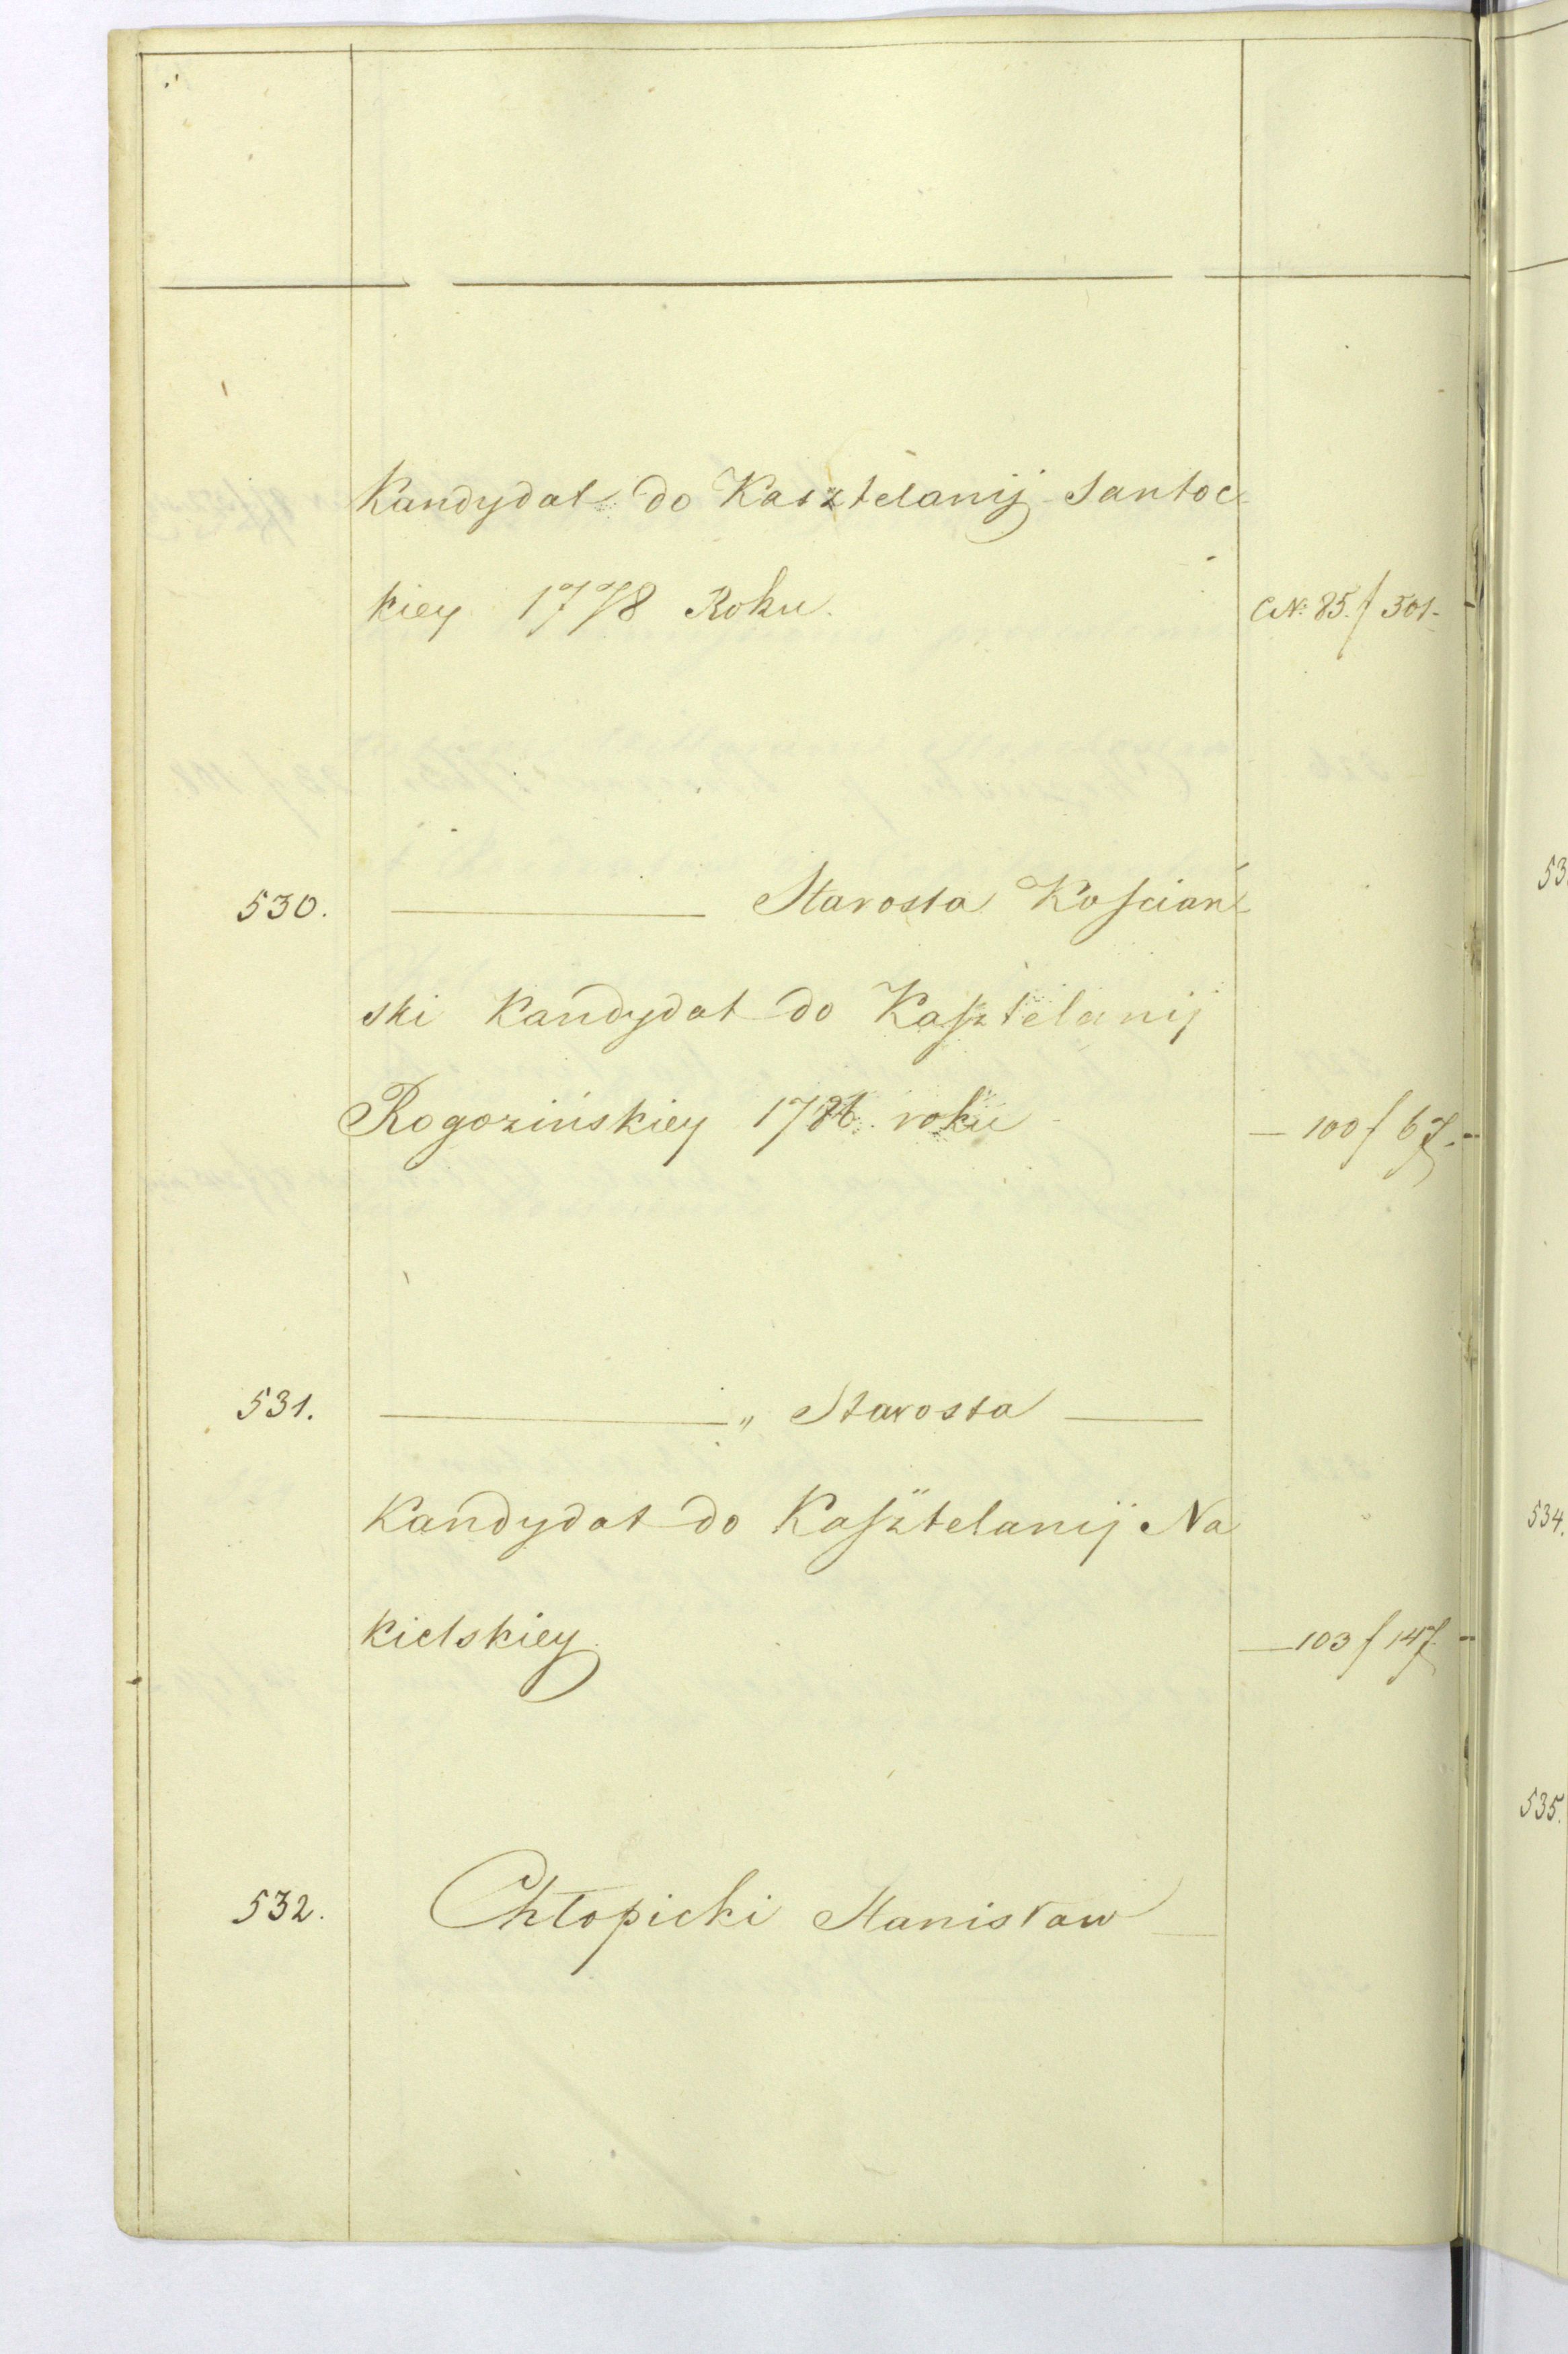 Kandydat do Kasztelanij Santoc
kiey 1778 Roku. № 85. f 501-
530. Starosta Kościań
ski Kandydat do Kasztelanij
Rogozińskiey roku — 100 f 67.
531. „ Starosta
Kandydat do Kasztelanij Na
kielskiey — 103 f 147.
532. Chłopicki Stanisław
53
534.
535.